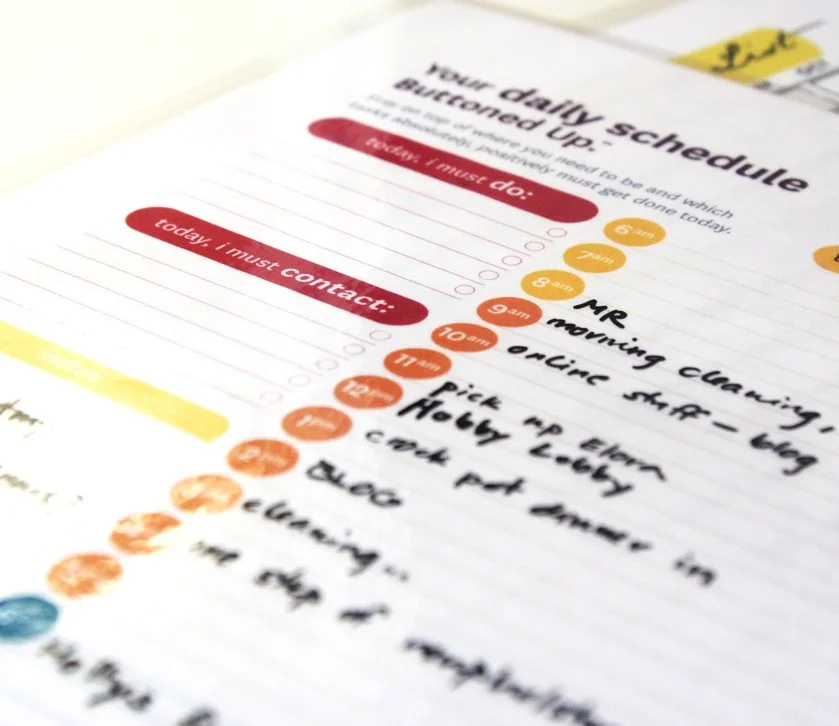 List
Your daily schedule
Buttoned Up.™
Stay on top of where you need to be and which
tasks absolutely, positively must get done today.
today, i must do:
today, i must contact:
notes
6am
7am
8am MR
9am morning cleaning,
10am online stuff - blog
11am
12pm pick up Elora
Hobby Lobby
1pm crock pot dinner in
2pm BLOG
cleaning...
step of